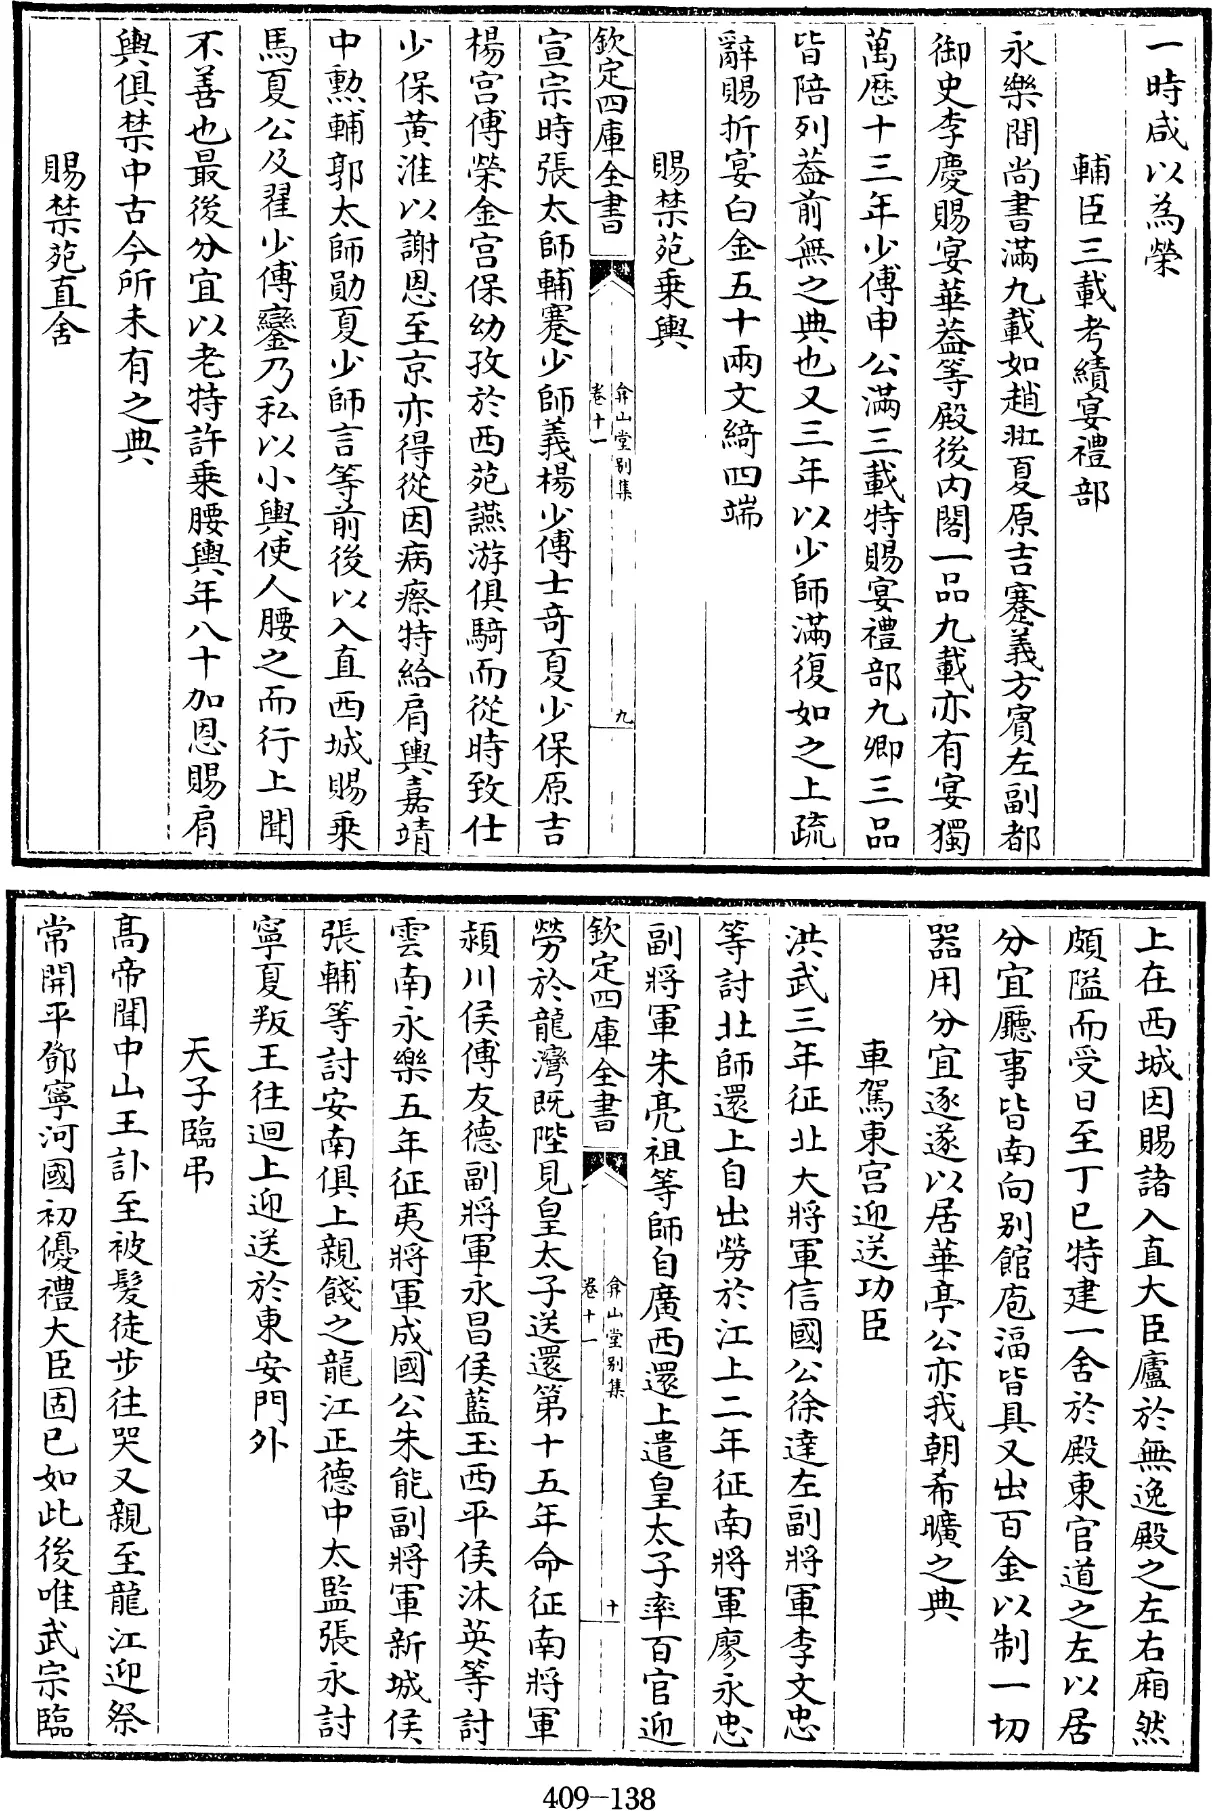 一時咸以為榮
輔臣三載考績宴禮部
永樂間尚書滿九載如趙羾夏原吉蹇義方賓左副都
御史李慶賜宴華葢等殿後内閣一品九載亦有宴獨
萬歴十三年少傅申公滿三載特賜宴禮部九卿三品
皆陪列葢前無之典也又三年以少師滿復如之上疏
辭賜折宴白金五十兩文綺四端
賜禁苑乗輿
欽定四庫全書
弇山堂别集
卷十一
九
宣宗時張太師輔蹇少師義楊少傅士奇夏少保原吉
楊宫傅榮金宫保幼孜於西苑讌游俱騎而從時致仕
少保黄淮以謝恩至京亦得從因病瘵特給肩輿嘉靖
中勲輔郭太師勛夏少師言等前後以入直西城賜乗
馬夏公及翟少傅鑾乃私以小輿使人腰之而行上聞
不善也最後分宜以老特許乗腰輿年八十加恩賜肩
輿俱禁中古今所未有之典
賜禁苑直舍
上在西城因賜諸入直大臣廬於無逸殿之左右廂然
頗隘而受日至丁巳特建一舍於殿東官道之左以居
分宜廳事皆南向别館庖湢皆具又出百金以制一切
器用分宜逐遂以居華亭公亦我朝希曠之典
車駕東宫迎送功臣
洪武三年征北大將軍信國公徐達左副將軍李文忠
等討北師還上自出勞於江上二年征南將軍廖永忠
副將軍朱亮祖等師自廣西還上遣皇太子率百官迎
欽定四庫全書
弇山堂别集
卷十一
十
勞於龍灣既陛見皇太子送還第十五年命征南將軍
潁川侯傅友德副將軍永昌侯藍玉西平侯沐英等討
雲南永樂五年征夷將軍成國公朱能副將軍新城侯
張輔等討安南俱上親餞之龍江正德中太監張永討
寧夏叛王往迴上迎送於東安門外
天子臨弔
髙帝聞中山王訃至被髮徒步往哭又親至龍江迎祭
常開平鄧寧河國初優禮大臣固已如此後唯武宗臨
409-138